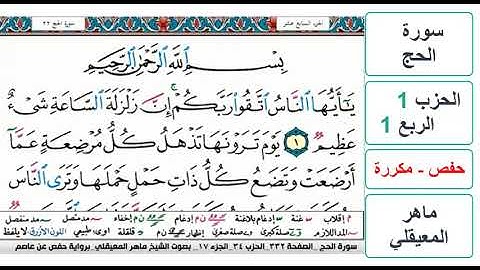 الجزء السابع عشر
سورة الحج ٢٢
بِسْمِ اللَّهِ الرَّحْمَٰنِ الرَّحِيمِ
يَا أَيُّهَا النَّاسُ اتَّقُوا رَبَّكُمْ ۚ إِنَّ زَلْزَلَةَ السَّاعَةِ شَيْءٌ
عَظِيمٌ ١ يَوْمَ تَرَوْنَهَا تَذْهَلُ كُلُّ مُرْضِعَةٍ عَمَّا
أَرْضَعَتْ وَتَضَعُ كُلُّ ذَاتِ حَمْلٍ حَمْلَهَا وَتَرَى النَّاسَ
إقلاب غنة إدغام بلاغنة إدغام إخفاء مد متصل مد منفصل
المد اللازم صلة كبرى صلة صغرى إظهار قلقلة
سورة الحج .. الصفحة ٣٣٢ .. الحزب ٣٤ .. الجزء ١٧ .. بصوت الشيخ ماهر المعيقلي .. برواية حفص عن عاصم
سورة
الحج
الحزب 1
الربع 1
حفص - مكررة
ماهر
المعيقلي